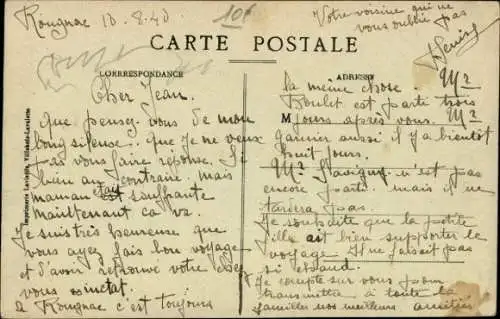 Rougnac 10-8-40
10f
Votre voisine qui ne
vous oublie pas
Henis
CARTE POSTALE
CORRESPONDANCE
ADRESSE
Imprimerie Larivière, Villebois-Lavalette
Cher Jean.
que pensez vous de mon
long silense.. que Je ne veux
pas vous faire réponse. Si
bien au contraire. mais
maman était souffrante
maintenant ca va.
Je suis très heureuse que
vous ayez fais bon voyage
et d'avoir retrouvé votre chez
vous intact.
à Rougnac c'est toujours
la même chose. Mr
Poulet est parti trois
M jours après vous. Mr
garnier aussi il y a bientôt
huit jours.
Mr Savigny n'est pas
encore parti. mais il ne
tardera pas.
Je souhaite que la petite
fille ait bien supporter le
voyage. Il ne faisait pas
si chaud.
Je compte sur vous pour
transmettre à toute la
famille nos meilleurs amitiés